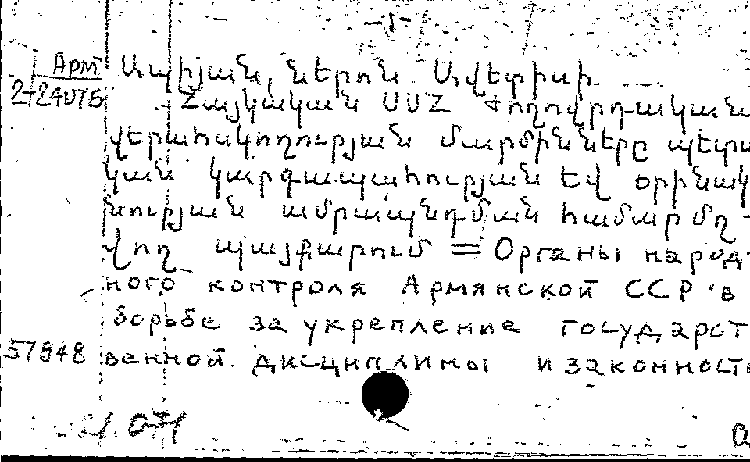 -1-
Арм Ասլիյան, Ներոն Ավետիսի.
2-24075 Հայկական ՍՍՀ ժողովրդական
վերահսկողության մարմինները պետա
կան կարգապահության եվ օրինակ
նության ամրապնդման համար մղ-
վող պայքարում = Органы народ-
ного контроля Армянской ССР в
борьбе за укрепление государст
57848 венной дисциплины и законност